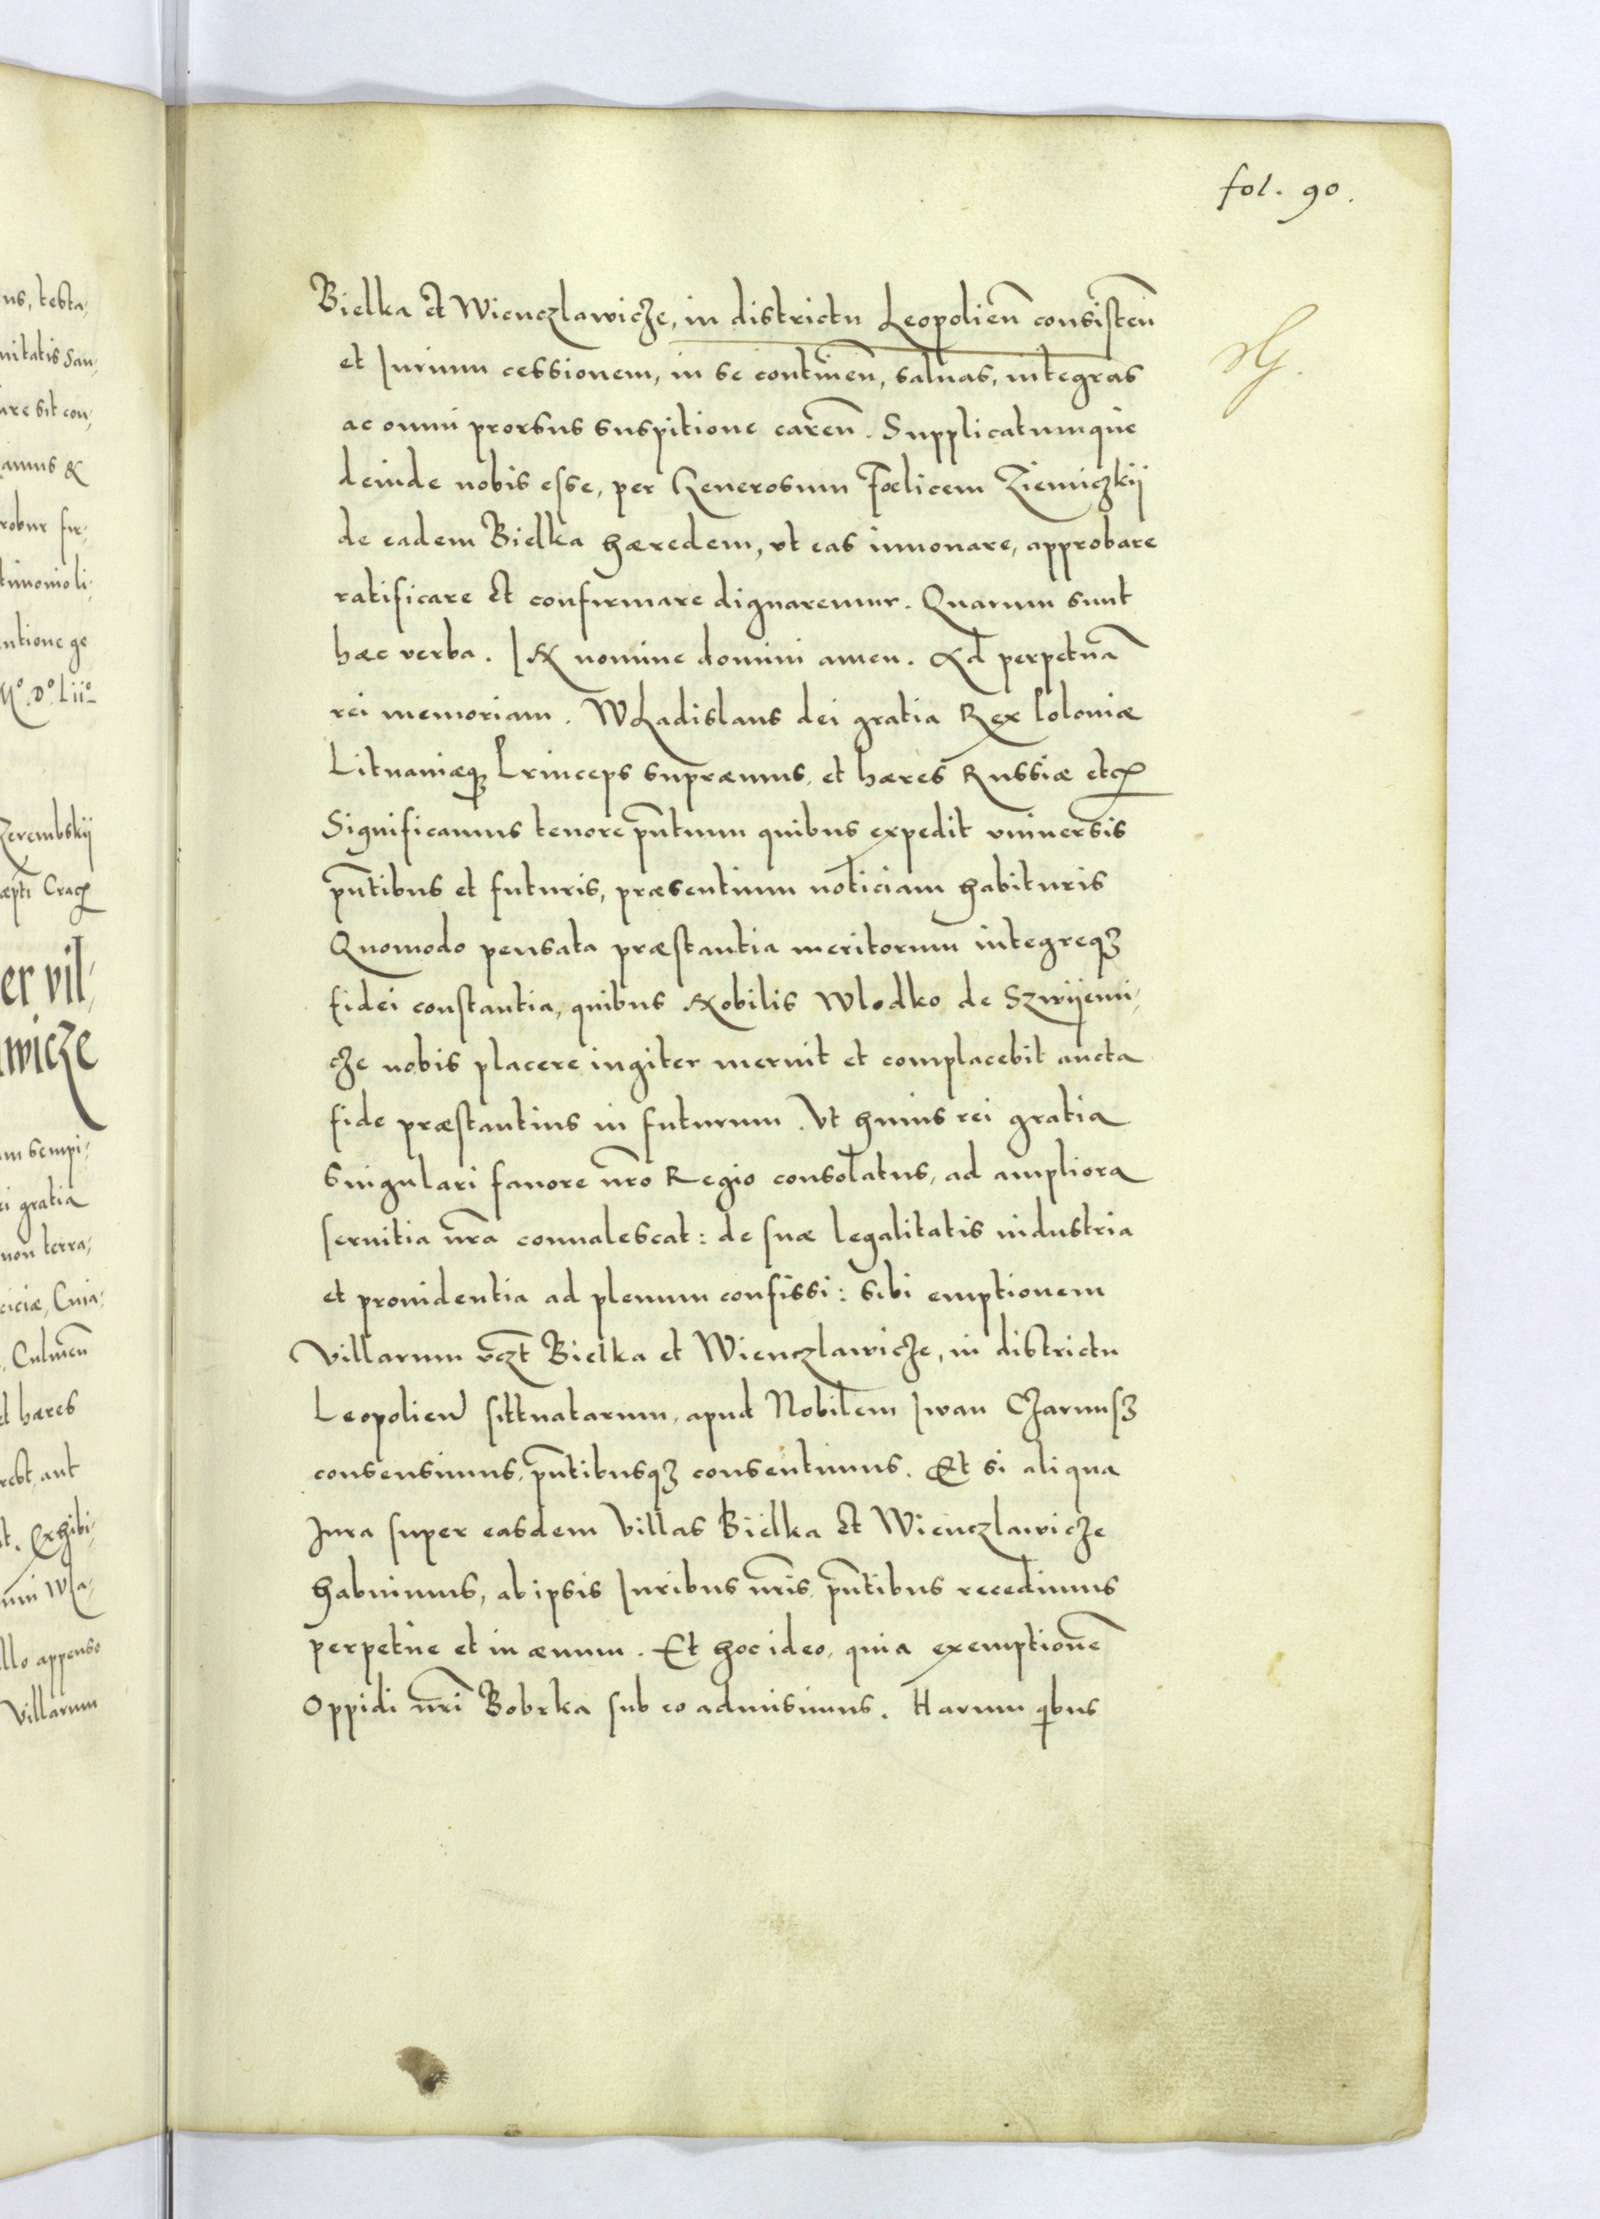 fol. 90.
Bielka et Wienczlawicze, in districtu Leopolień consisteń
et Iurium cessionem, in se contineń, saluas, integras
ac omni prorsus suspitione careń. Supplicatumque
deinde nobis esse, per Generosum Foelicem Ziemiczkij
de eadem Bielka hæredem, vt eas innouare, approbare
ratificare et confirmare dignaremur. Quarum sunt
hæc verba. IN nomine domini amen. Ad perpetuā
rei memoriam. Wladislaus dei gratia Rex Poloniæ
Lituaniæqꝫ Princeps supræmus, et hæres Russiæ etc
Significamus tenore pn̄tium quibus expedit vniuersis
pn̄tibus et futuris, præsentium noticiam habituris
Quomodo pensata præstantia meritorum integreqꝫ
fidei constantia, quibus Nobilis Wlodko de Szwijemi,
cze nobis placere iugiter meruit et complacebit aucta
fide præstantius in futurum. Vt huius rei gratia
singulari fauore nr̄o Regio consolatus, ad ampliora
seruitia nr̄a conualescat: de suæ legalitatis industria
et prouidentia ad plenum confissi: sibi emptionem
villarum vcꝫt Bielka et Wienczlawicze, in districtu
Leopolień sittuatarum, apud Nobilem Iwan Czarnusꝫ
consensimus, pn̄tibusqꝫ consentimus. Et si aliqua
Iura super easdem villas Bielka et Wienczlawicze
habuimus, ab ipsis Iuribus nr̄is pn̄tibus recedimus
perpetue et in æuum. Et hoc ideo, quia exemptionē
Oppidi nr̄i Bobrka sub eo admisimus. Harum qibus